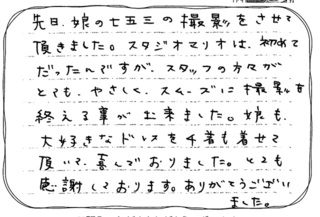 先日、娘の七五三の撮影をさせて
頂きました。スタジオマリオは、初めて
だったんですが、スタッフの方々が
とても、やさしく、スムーズに撮影を
終える事が出来ました。娘も、
大好きなドレスを4着も着せて
頂いて、喜んでおりました。とても
感謝しております。ありがとうござい
ました。